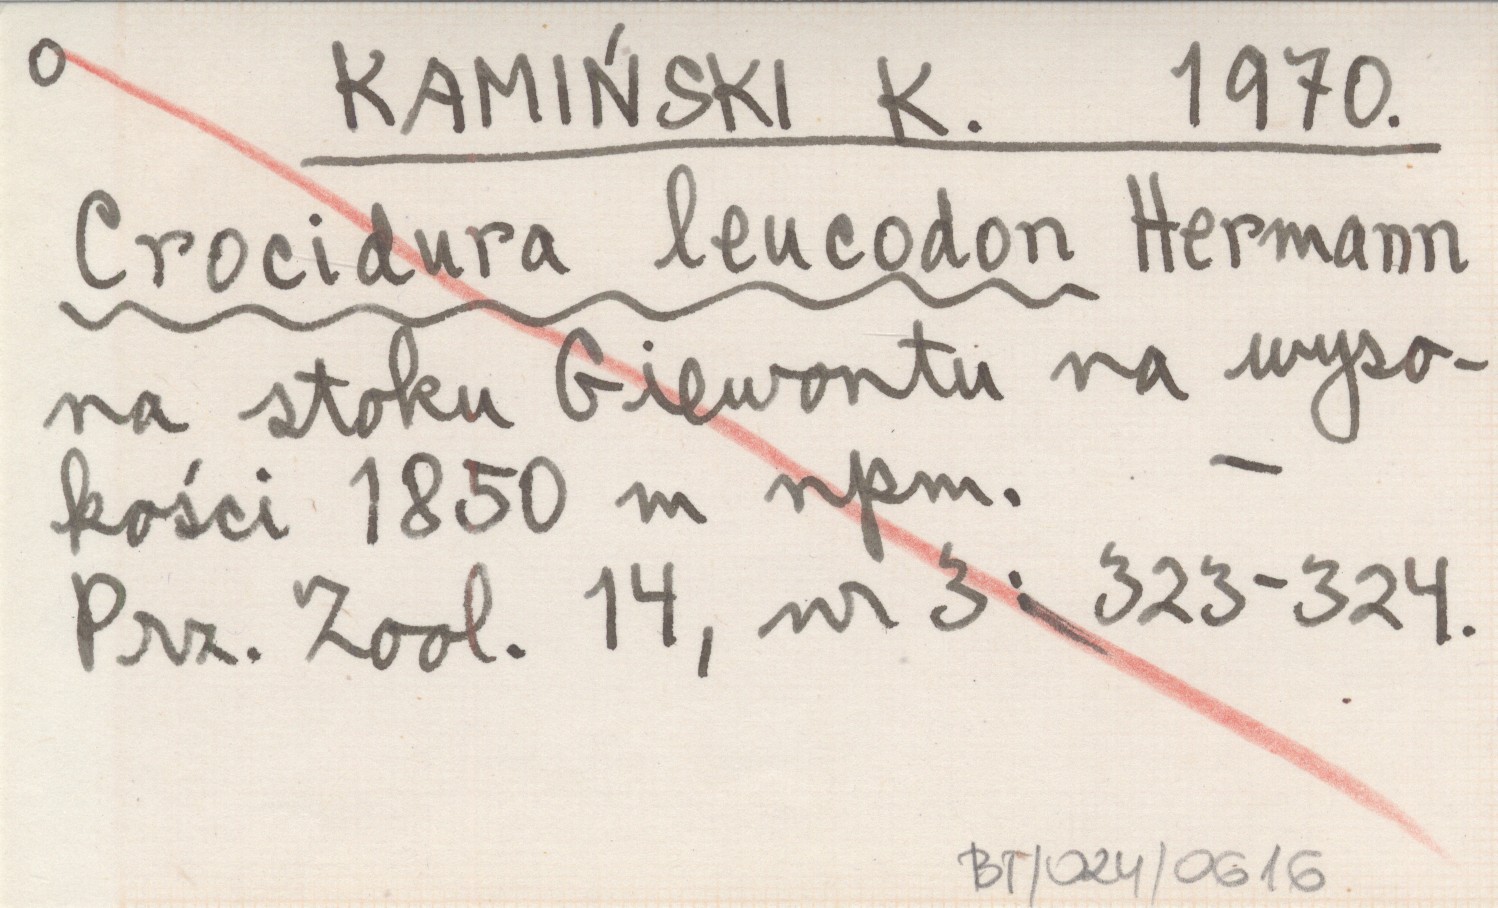 o KAMIŃSKI K. 1970.
Crocidura leucodon Hermann
na stoku Giewontu na wyso-
kości 1850 m npm. -
Prz. Zool. 14, nr 3: 323-324.
BT/024/0616